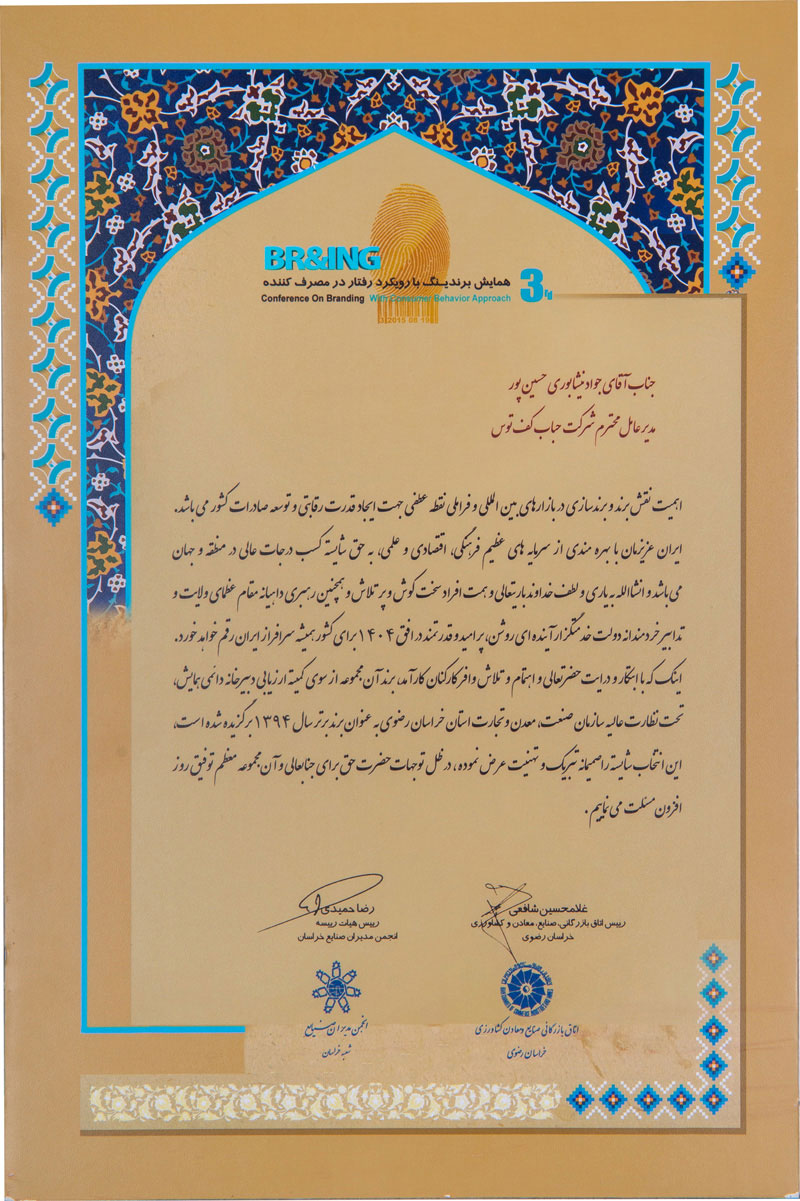 BR&ING
همایش برندینگ با رویکرد رفتار در مصرف کننده
3rd
Conference On Branding With Consumer Behavior Approach
2015 08 19
جناب آقای جواد نیشابوری حسین پور
مدیر عامل محترم شرکت حباب کف توس
اهمیت نقش برند و برندسازی در بازارهای بین المللی و فراملی نقطه عطفی جهت ایجاد قدرت رقابتی و توسعه صادرات کشور می باشد.
ایران عزیزمان با بهره مندی از سرمایه های عظیم فرهنگی، اقتصادی و علمی، به حق شایسته کسب درجات عالی در منطقه و جهان
می باشد و انشاالله به یاری و لطف خداوند باریتعالی و همت افراد سخت کوش و پر تلاش و همچنین رهبری داهیانه مقام عظمای ولایت و
تدابیر خردمندانه دولت خدمتگزار آینده ای روشن، پرامید و قدرتمند در افق ۱۴۰۴ برای کشور همیشه سرافراز ایران رقم خواهد خورد.
اینک که با ابتکار و درایت حضرتعالی و اهتمام و تلاش وافر کارکنان کارآمد، برند آن مجموعه از سوی کمیته ارزیابی دبیرخانه دائمی همایش،
تحت نظارت عالیه سازمان صنعت، معدن و تجارت استان خراسان رضوی به عنوان برند برتر سال ۱۳۹۴ برگزیده شده است،
این انتخاب شایسته را صمیمانه تبریک و تهنیت عرض نموده، در ظل توجهات حضرت حق برای جنابعالی و آن مجموعه معظم توفیق روز
افزون مسئلت می نماییم.
غلامحسین شافعی
رییس اتاق بازرگانی، صنایع، معادن و کشاورزی
خراسان رضوی
اتاق بازرگانی صنایع و معادن کشاورزی
خراسان رضوی
رضا حمیدی
رییس هیات رییسه
انجمن مدیران صنایع خراسان
انجمن مدیران صنایع
شعبه خراسان